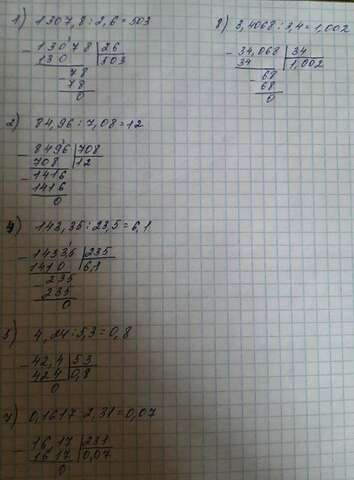 1) 1307,8 : 2,6 = 503
13078 | 26
130 | 503
78
78
0
2) 84,96 : 7,08 = 12
8496 | 708
708 | 12
1416
1416
0
4) 143,35 : 23,5 = 6,1
1433,5 | 235
1410 | 6,1
235
235
0
5) 4,24 : 5,3 = 0,8
42,4 | 53
42 4 | 0,8
0
7) 0,1617 : 2,31 = 0,07
16,17 | 231
16 17 | 0,07
0
8) 3,4068 : 3,4 = 1,002
34,068 | 34
34 | 1,002
68
68
0